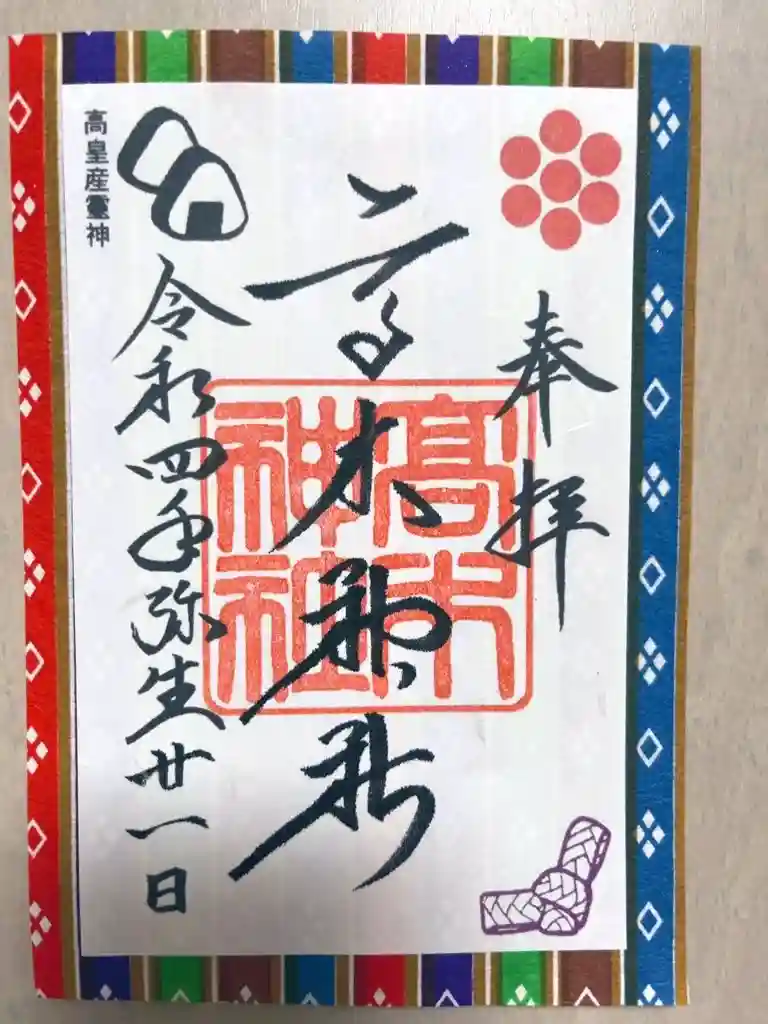 奉拝
高木神社
高木神社
令和四年弥生廿一日
高皇産靈神